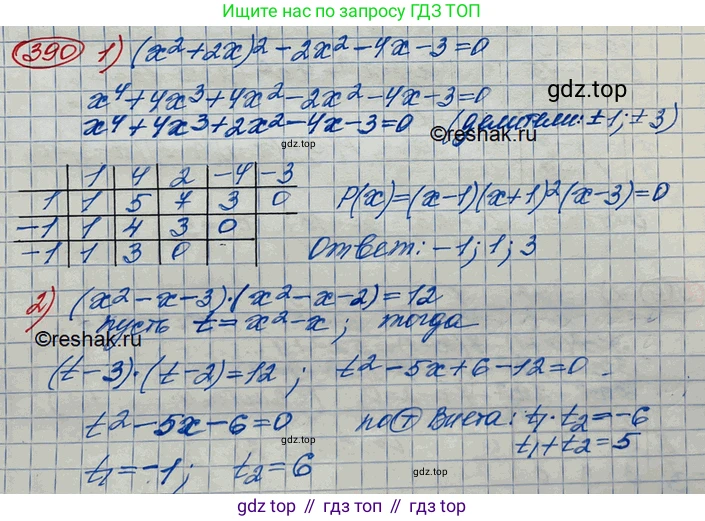 Ищите ответы по запросу ГДЗ ТОП
390 1) (x² + 2x)² - 2x² - 4x - 3 = 0
gdz.top
x⁴ + 4x³ + 4x² - 2x² - 4x - 3 = 0
x⁴ + 4x³ + 2x² - 4x - 3 = 0 (делители: ±1; ±3)
©reshak.ru
gdz.top
1 4 2 -4 -3
1 1 5 7 3 0 P(x) = (x-1)(x+1)²(x-3) = 0
-1 1 4 3 0
-1 1 3 0 Ответ: -1; 1; 3
2) (x² - x - 3)·(x² - x - 2) = 12
пусть t = x² - x; тогда
©reshak.ru
(t-3)·(t-2) = 12; t² - 5x + 6 - 12 = 0
t² - 5x - 6 = 0 по Т Виета: t₁·t₂ = -6
t₁ + t₂ = 5
gdz.top
gdz.top
t₁ = -1; t₂ = 6
gdz top // гдз топ // gdz.top // гдз топ // gdz.top